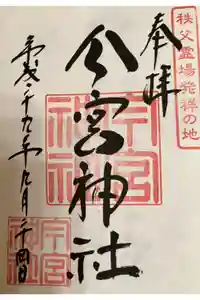 秩父霊場発祥の地
奉拝
今宮神社
今宮神社
平成二十九年九月二十四日
今宮神社